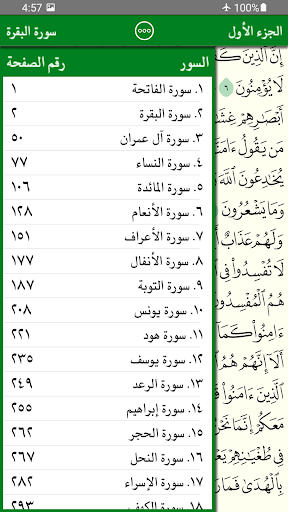 4:57 100%
الجزء الأول سورة البقرة
السور رقم الصفحة
١. سورة الفاتحة ١
٢. سورة البقرة ٢
٣. سورة آل عمران ٥٠
٤. سورة النساء ٧٧
٥. سورة المائدة ١٠٦
٦. سورة الأنعام ١٢٨
٧. سورة الأعراف ١٥١
٨. سورة الأنفال ١٧٧
٩. سورة التوبة ١٨٧
١٠. سورة يونس ٢٠٨
١١. سورة هود ٢٢١
١٢. سورة يوسف ٢٣٥
١٣. سورة الرعد ٢٤٩
١٤. سورة إبراهيم ٢٥٥
١٥. سورة الحجر ٢٦٢
١٦. سورة النحل ٢٦٧
١٧. سورة الإسراء ٢٨٢
١٨. سورة الكهف ٢٩٣
إِنَّ ٱلَّذِينَ كَفَ
لَا يُؤْمِنُونَ ٦
أَبْصَٰرِهِمْ غِشَٰ
مَن يَقُولُ ءَامَنَّا
يُخَٰدِعُونَ ٱللَّهَ
وَمَا يَشْعُرُونَ
وَلَهُمْ عَذَابٌ
لَا تُفْسِدُوا۟ فِى
هُمُ ٱلْمُفْسِدُو
ءَامِنُوا۟ كَمَآ
أَلَآ إِنَّهُمْ هُمُ
ٱلَّذِينَ ءَامَنُوا۟ قَا
مَعَكُمْ إِنَّمَا نَحْنُ
فِى طُغْيَٰنِهِمْ يَعْ
بِٱلْهُدَىٰ فَمَا رَ